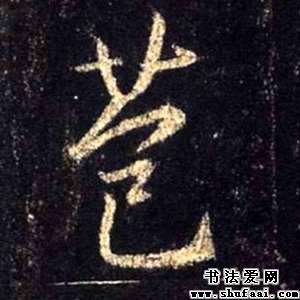 苞
书法爱网
www.shufaai.com